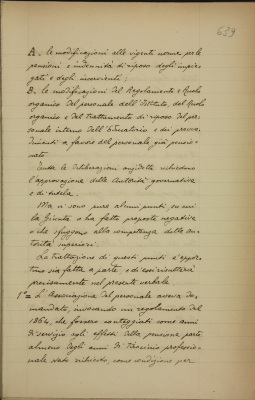 639
A. le modificazioni alle vigenti norme per le
pensioni e indennità di riposo degli impie-
gati e degli inservienti.
B. le modificazioni del Regolamento e Ruolo
organico del personale dell'Istituto, del Ruolo
organico e del trattamento di riposo del per-
sonale interno dell' e dei provve-
dimenti a favore del personale già pensio-
nato.
Tutte le deliberazioni anzidette richiedono
l'approvazione della Autorità governativa
e di tutela.
Ma vi sono pure alcuni punti su cui
la Giunta o ha fatto proposte negative
o che sfuggono alla competenza delle au-
torità superiori.
La trattazione di questi punti è oppor-
tuno sia fatta a parte, e di essi risulterà
precisamente nel presente verbale.
1° = L'Associazione del personale aveva do-
mandato, invocando un regolamento del
1864, che fossero conteggiati come anni
di servizio agli effetti della pensione parte
almeno degli anni di tirocinio professio-
nale stato richiesto, come condizione per